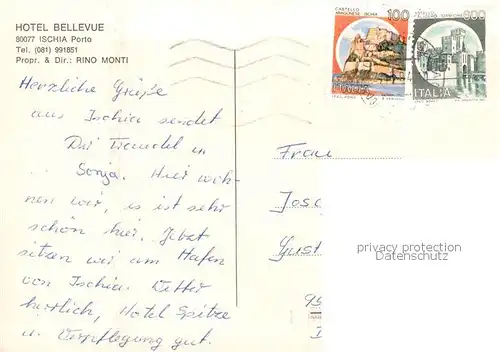 HOTEL BELLEVUE
80077 ISCHIA Porto
Tel. (081) 991851
Propr. & Dir.: RINO MONTI
CASTELLO
ARAGONESE ISCHIA
100
800
ITALIA
Herzliche Grüße
aus Ischia sendet
Dir Traudel u.
Sonja. Hier woh-
nen wir, es ist sehr
schön hier. Jetzt
sitzen wir am Hafen
von Ischia. Wetter
herrlich, Hotel Spitze
u. Verpflegung gut.
Frau
Josc
Gust
95
privacy protection
Datenschutz